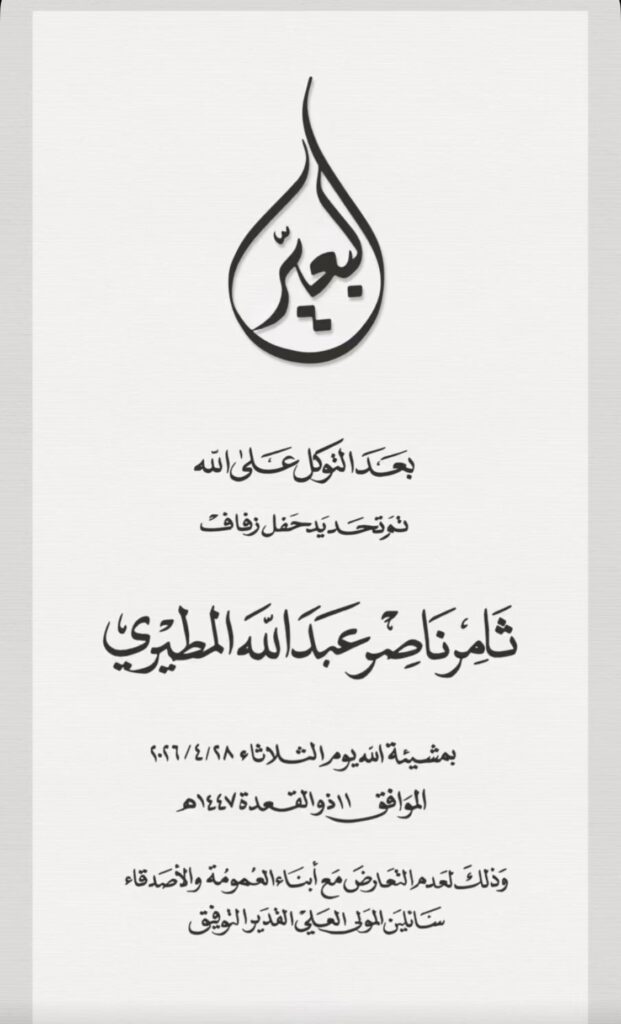 البعيّر
بعد التوكل على الله
تم تحديد حفل زفاف
ثامر ناصر عبدالله المطيري
بمشيئة الله يوم الثلاثاء ٢٠٢٦/٤/٢٨
الموافق ١١ ذو القعدة ١٤٤٧هـ
وذلك لعدم التعارض مع أبناء العمومة والأصدقاء
سائلين المولى العلي القدير التوفيق